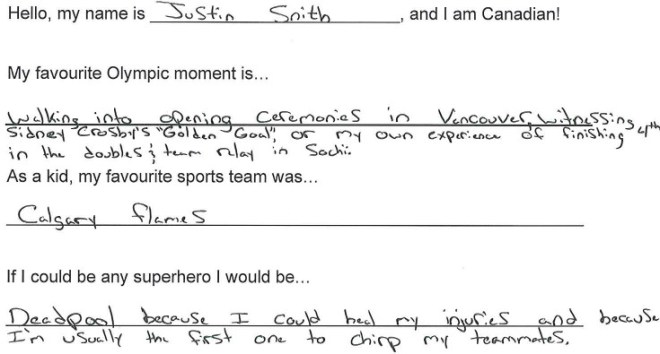 Hello, my name is Justin Snith, and I am Canadian!
My favourite Olympic moment is...
Walking into opening ceremonies in Vancouver, witnessing
Sidney Crosby's "Golden Goal", or my own experience of finishing 4th
in the doubles & team relay in Sochi.
As a kid, my favourite sports team was...
Calgary flames
If I could be any superhero I would be...
Deadpool because I could heal my injuries and because
I'm usually the first one to chirp my teammates.